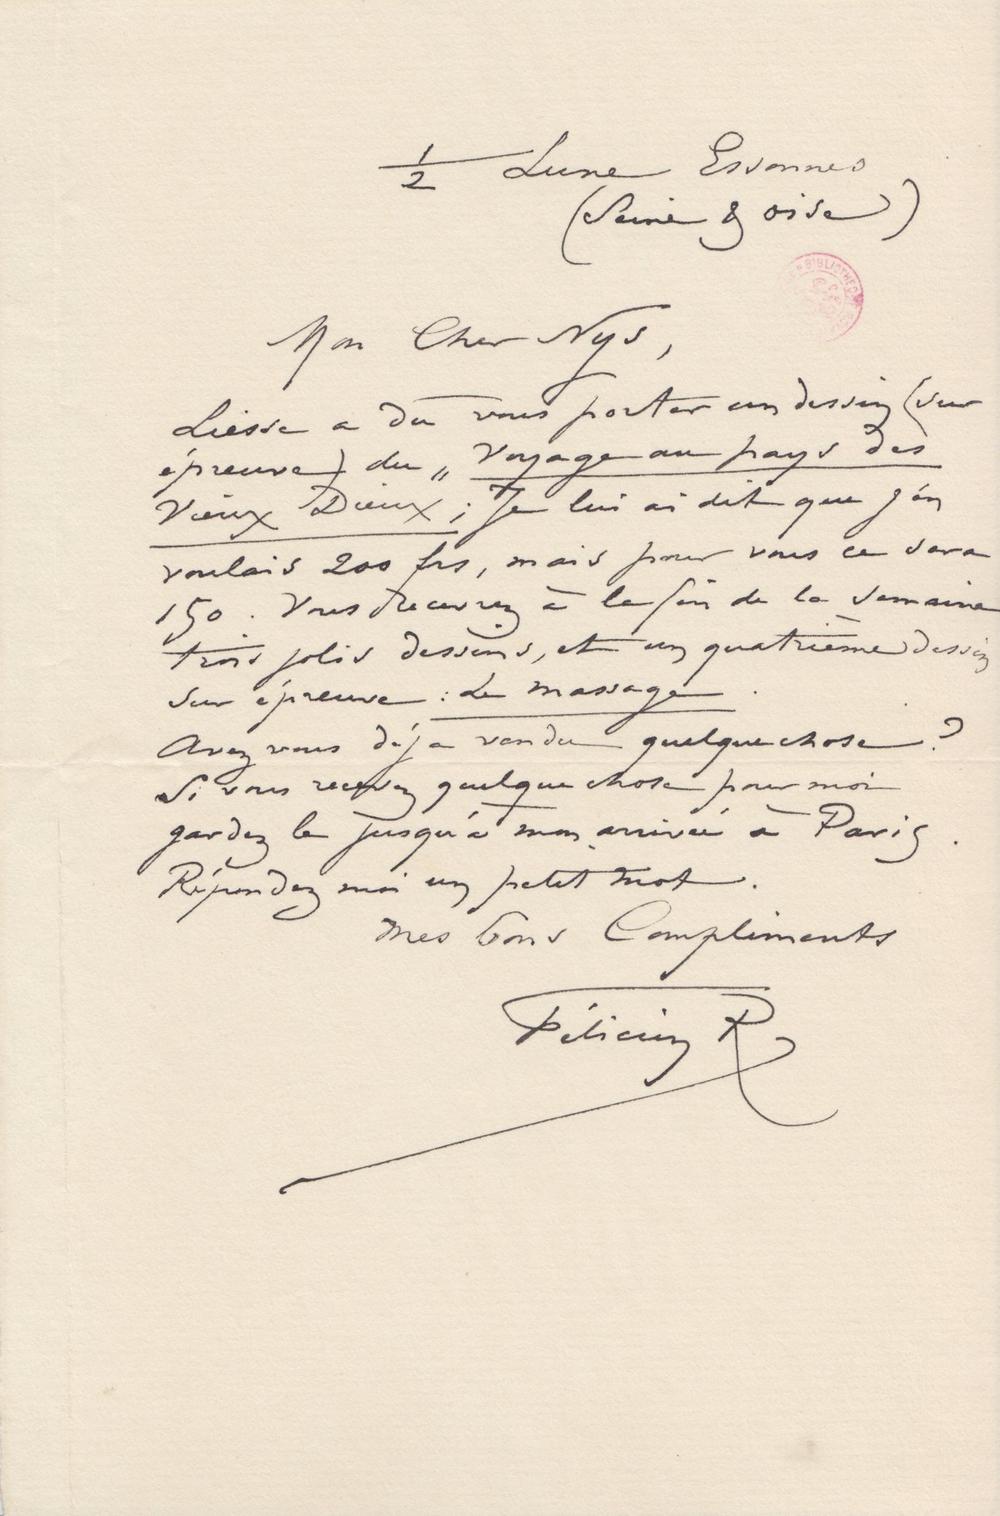 1/2 Lune Essonnes
(Seine & oise)
BIBLIOTHEC
Mon Cher Nys,
Liesse a du vous porter un dessin (sur
épreuve) du „ Voyage au pays des
Vieux Dieux ; Je lui ai dit que j'en
voulais 200 frs, mais pour vous ce sera
150. Vous recevrez à la fin de la semaine
trois jolis dessins, et un quatrième dessin
sur épreuve : Le massage .
Avez vous déja vendu quelque chose ?
Si vous recevez quelque chose pour moi
gardez le jusqu'à mon arrivée à Paris .
Répondez moi un petit mot .
Mes bons Compliments
Félicien R